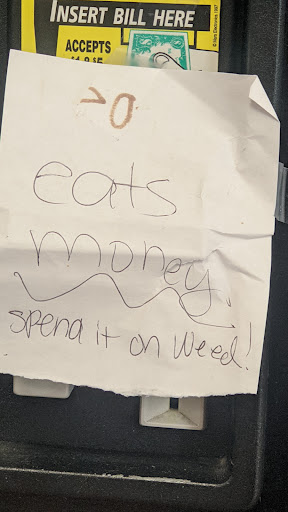 INSERT BILL HERE
ACCEPTS
$1 & $5
>0
eats
money.
spend it on weed!